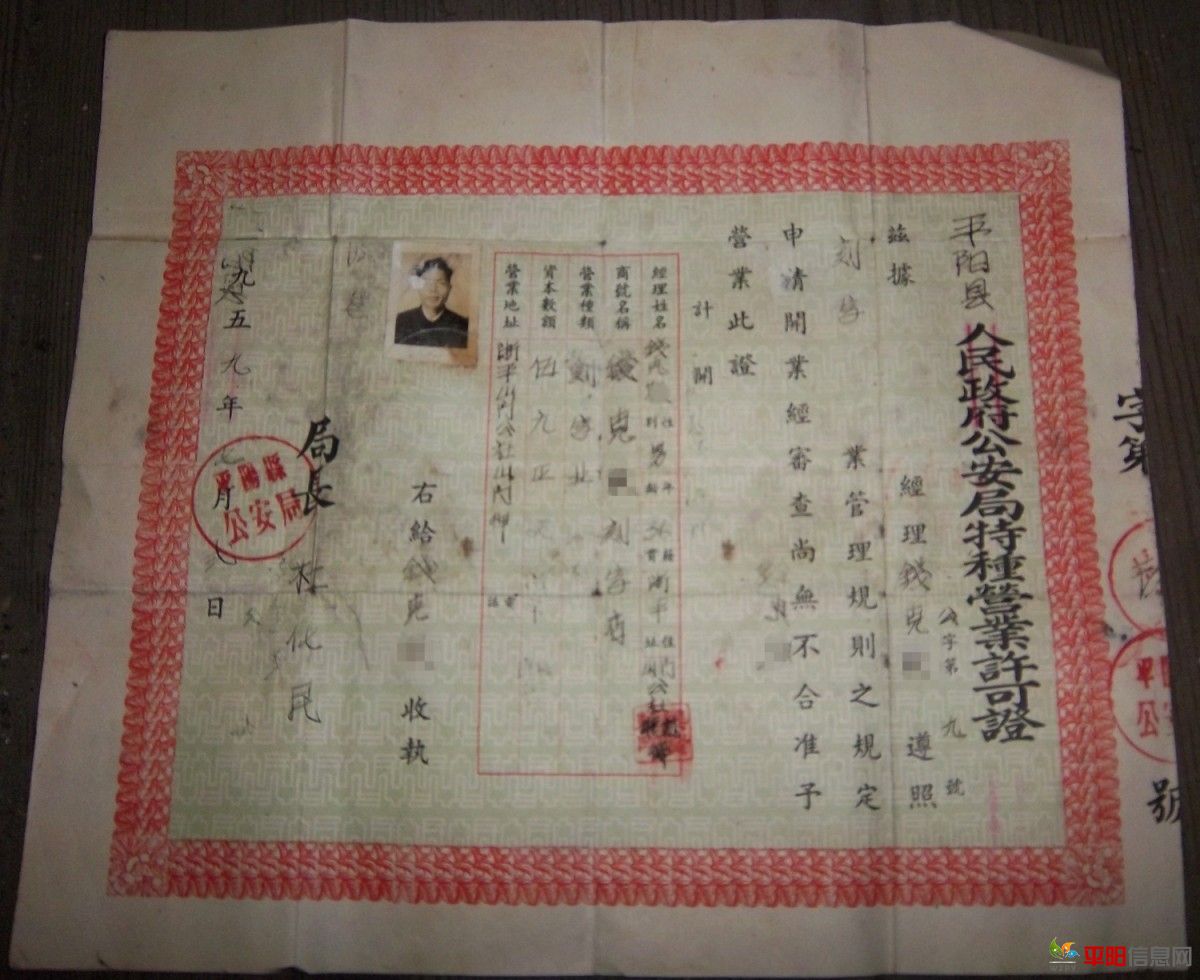 平阳县人民政府公安局特種營業許可證
公字第九號
兹據
經理錢克
遵照
刻字
業管理規則之規定
申請開業經審查尚無不合准予
營業此證
計開
經理姓名
錢克
性別
男
年齡
籍貫
浙平
住址
公社
商號名稱
錢克
刻字店
營業種類
刻字业
資本數額
伍元正
營業地址
浙平
公社
右給錢克
收執
局長
化民
五九年
月
日
平陽縣
公安局
字第
號
平阳信息网